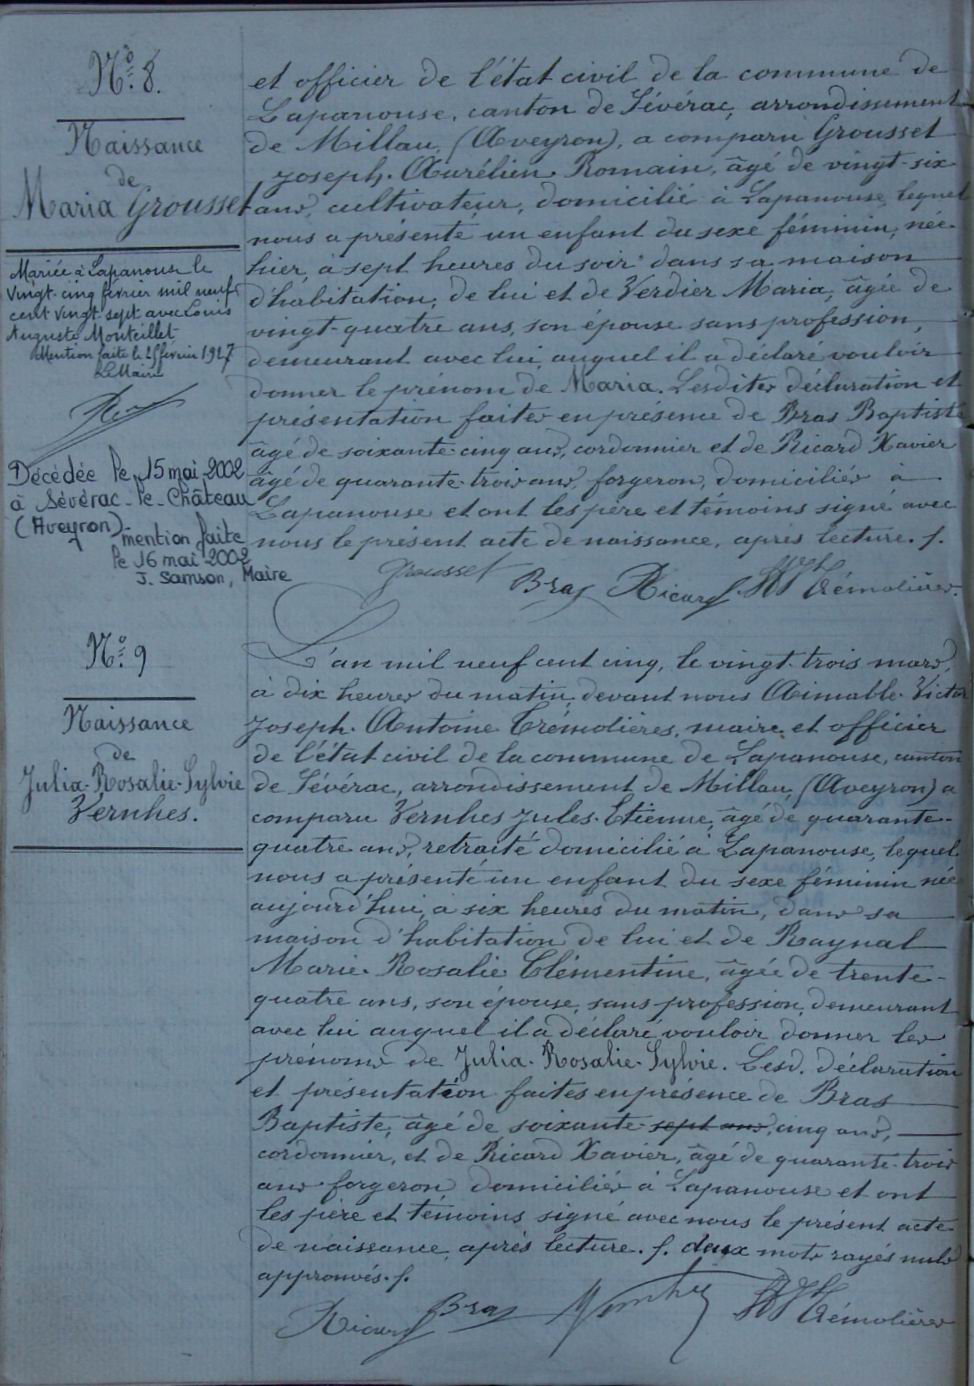 Nº 8.
Naissance
de
Maria Grousset
Mariée à Lapanouse le
vingt-cinq février mil neuf
cent vingt-sept avec Louis
Auguste Monteillet
Mention faite le 25 février 1927
Le Maire
Décédée le 15 mai 2002
à Sévérac-le-Château
(Aveyron).
mention faite
le 16 mai 2002
J. Samson, Maire
et officier de l'état civil de la commune de
Lapanouse, canton de Sévérac, arrondissement
de Millau, (Aveyron), a comparu Grousset
Joseph-Aurélien Romain, âgé de vingt-six
ans, cultivateur, domicilié à Lapanouse, lequel
nous a présenté un enfant du sexe féminin, née
hier, à sept heures du soir dans sa maison
d'habitation, de lui et de Verdier Maria, âgée de
vingt-quatre ans, son épouse sans profession,
demeurant avec lui, auquel il a déclaré vouloir
donner le prénom de Maria. Lesdites déclaration et
présentation faites en présence de Bras Baptiste
âgé de soixante-cinq ans, cordonnier et de Ricard Xavier
âgé de quarante-trois ans, forgeron, domiciliés à
Lapanouse et ont les père et témoins signé avec
nous le présent acte de naissance, après lecture. f.
Grousset Bras Ricard Trémolières
Nº 9
Naissance
de
Julia-Rosalie-Sylvie
Vernhes.
L'an mil neuf cent cinq, le vingt-trois mars,
à dix heures du matin, devant nous Aimable-Victor
Joseph-Antoine Trémolières, maire et officier
de l'état civil de la commune de Lapanouse, canton
de Sévérac, arrondissement de Millau, (Aveyron) a
comparu Vernhes Jules-Etienne, âgé de quarante-
quatre ans, retraité domicilié à Lapanouse, lequel
nous a présenté un enfant du sexe féminin née
aujourd'hui, à six heures du matin, dans sa
maison d'habitation de lui et de Raynal
Marie-Rosalie Clémentine, âgée de trente-
quatre ans, son épouse, sans profession, demeurant
avec lui auquel il a déclaré vouloir donner les
prénoms de Julia-Rosalie-Sylvie. Lesd. déclaration
et présentation faites en présence de Bras
Baptiste, âgé de soixante sept ans, cinq ans,
cordonnier, et de Ricard Xavier, âgé de quarante-trois
ans forgeron domiciliés à Lapanouse et ont
les père et témoins signé avec nous le présent acte
de naissance, après lecture. f. deux mots rayés nuls
approuvés. f.
Ricard Bras Vernhes Trémolières